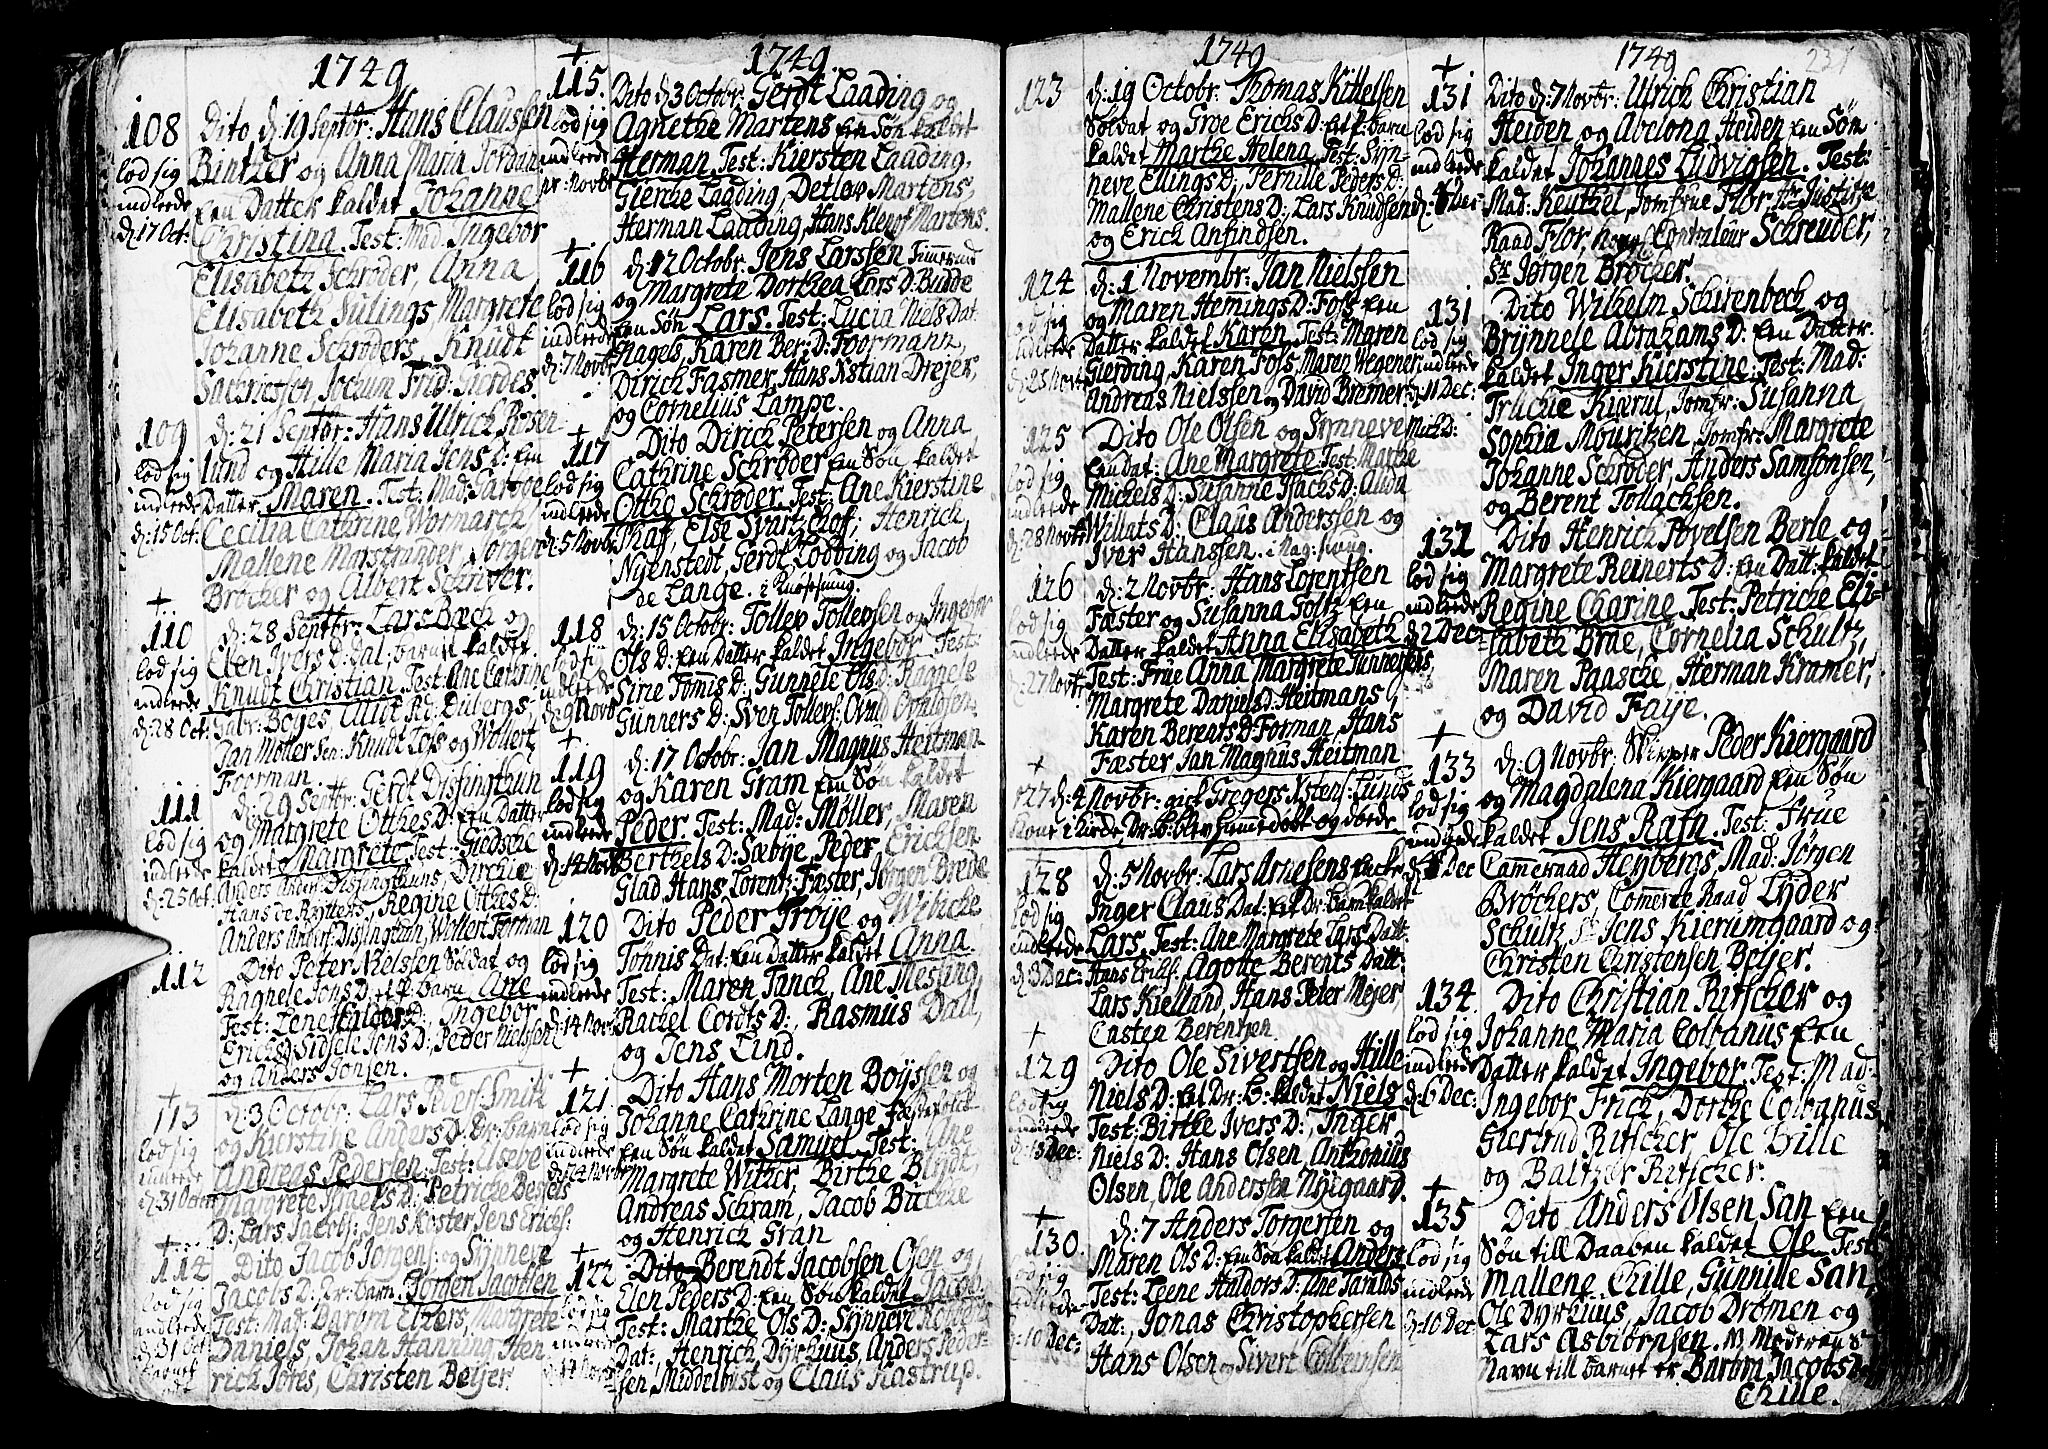 1749
108
lod sig
indleede
d: 17 Oct:
Dito d: 19 Septbr: Hans Claussen
Bintzer og Anna Maria Jordan
Een Datter kaldet Johanne
Christina. Test: Mad. Ingebor
Elisabeth Schrøder, Anna
Elisabeth Sülings Margrete
Johanne Schrøders, Knudt
Jochum Frid: Gerdes
109
lod sig
indleede
d: 15 Oct:
d: 21 Septbr: Hans Ulrich Rosen
lund og Hille Maria Jens D: Een
Datter Maren. Test: Mad:
Cecilia Cathrine Wormarck
Mallene Marstrander, Jørgen
Brøcher og Albert Schriver.
+
110
lod sig
indleede
d: 28 Oct:
d: 28 Septbr: Lars Bech og
Elen Ivers D: Dal, barnet kaldet
Knudt Christian. Test: Ane Cathrine
Jan Møller Sen: Knudt Fos og Wollert
Foorman.
111
lod sig
indleede
d: 25 Oct:
d: 29 Septbr: Gerdt Dissingthun
og Margrete Otthes D: Een Datter
kaldet Margrete Test: Giedsche
Anders Ander: Dissingthuns, Dirchie
Hans de Rytters, Regine Otthes D:
Anders Anders: Dissingtun, Wollert Forman
112
Dito Peter Nielssen Soldat og
Ragnele Jons D: et F: Barn Ane
Test: Lene Haldors D:, Ingebor
Erichs D: Sidsele Jens D:, Peder Nielssen
og Anders Jonsen.
+
113
lod sig
indleede
d: 31
d: 3 Octobr: Lars Peters: Smith
og Kierstine Anders D: Dr: barn
Andreas Pedersen. Test: Elsebe
Margrete D: Petricke Bessels
D:, Lars Jacobs:, Jens Koster, Jens Erichs:
114
lod sig
indleede
d: 31 Oct
Dito Jacob Jørgens: og Synneve
Jacobs D: Dr: barn: Jørgen Jacobsen
Test: Mad: Barom Ehlers, Margrete
Daniels, Johan Hanning, Hen
rich Jotes, Christen Beijer
1749
+
115.
lod sig
indleede
pr: Novbr
Dito d: 3 Octobr: Gerdt Laading og
Agnethe Martens Een Søn kaldet
Herman. Test: Kiersten Laading,
Gierche Laading, Detlov Martens,
Herman Laading, Hans Martens.
+
116
lod sig
indleede
d: 7 Novbr
d: 12 Octobr: Jens Larssen Timmermd
og Margrete Dorthea Lars D: Budde
Een Søn Lars. Test: Lucia Niels Dat
Nagels, Karen Ber: D: Foormann,
Dirich Fasmer, Hans Xstian Drejer,
og Cornelius Lampe.
+
117
lod sig
indleede
d: 5 Novbr
Dito Dirich Petersen og Anna
Cathrine Schrøder Een Søn kaldet
Ottho Schrøder. Test: Ane Kierstine
Thaf, Else Svartzkhof, Henrich
Nyenstedt, Gerdt Lodding og Jacob
de Lange.
118
lod sig
indleede
d: 9 Novbr
d: 15 Octobr: Tollev Tollevsen og Ingebor
Ols D: Een Datter kaldet Ingebor Test:
Sirie Tommis D:, Gunnele Ols D: Ragnele
Gunners D: Sven Tollevs:
+
119
lod sig
indleede
d: 14 Nov:
d: 17 Octobr: Jan Magnus Heitman
og Karen Gram Een Søn kaldet
Peder. Test: Mad: Møller, Maren
Berthels D: Sæbye, Peder Erichsen
Glad, Hans Lorentz: Fæster, Jørgen Brede
120
lod sig
indleede
d: 14 Novbr
Dito Peder Frøye og Wibicke
Tønnis Dat: Een Datter kaldet Anna.
Test: Maren Tanck, Ane Mesling,
Rachel Cordts D:, Rasmus Dall,
og Jens Lind.
+
121
lod sig
indleede
d: 24 Novbr
Dito Hans Morten Boysen og
Johanne Cathrine Lange
Een Søn kaldet Samuel. Test: Ane
Margrete Witzer, Birthe Blydt,
Andreas Schram, Jacob Büchke
og Henrich Gran
+
122
lod sig
indleede
Dito Berendt Jacobsen Osen og
Elen Peders D: Een Søn kaldet Jacob.
Test: Marthe Ols D:, Synneve
Dat:, Henrich Dyrhuus, Anders Peder-
sen Middelbost og Claus Kastrup.
1749
123
d: 19 Octobr: Thomas Kittelsen
Soldat og Groe Erichs D: et F: barn
kaldet Marthe Helena. Test: Syn-
neve Ellings D:, Pernille Peders D:
Mallene Christens D:, Lars Knudsen
og Erich Anfindsen.
124
lod sig
indleede
d: 25 Novbr
d: 1 Novembr: Jan Nielssen
og Maren Hemings D: Foss Een
Datter kaldet Karen. Test: Maren
Gierding, Karen Foss, Maren Wegener
Andreas Nielssen og David Bremer
125
lod sig
indleede
d: 28 Novbr
Dito Ole Olsen og Synneve Mich D:
Een Dat: Ane Margrete Test: Marthe
Michels D: Susanne Isachs D: Anna
Willats D: Claus Anderssen og
Iver Hanssen.
126
lod sig
indleede
d: 27 Novbr
d: 2 Novbr: Hans Lorentsen
Fæster og Susanna Goltz Een
Datter kaldet Anna Elisabeth
Test: Frue Anna Margrete
Margrete Daniels D: Heitmans,
Karen Berents D: Forman, Hans
Fæster Jan Magnus Heitman
+
127 d: 4 Novbr: gick Gregers Xstens: Lunds
Kone i kircke, Dr: B: blev hiemmedøbt og døede
+
128
lod sig
indleede
d: 3 Dec:
d: 5 Novbr: Lars Arnesens
Inger Claus Dat: Et Dr: barn kaldet
Lars. Test: Ane Margrete Lars Datt:
Hans Erichs: Agotte Berents Datt:
Lars Kielland, Hans Peter Mejer,
Casten Berentsen
+
129
lod sig
indleede
Dec:
Dito Ole Sivertsen og Hille
Niels D: Et Dr: B: kaldet Niels
Test: Birthe Ivers D:, Inger
Niels D: Hans Olsen, Anthonius
Olsen, Ole Anderssen Nyegaard.
+
130.
lod sig
indleede
d: 10 Dec:
d: 7 Anders Torgersen og
Maren Ols D: Een Søn kaldet Anders
Test: Leene Haldors D:, Ane
Datt:, Jonas Christophersen
Hans Olsen og Sivert
1749
231
+
131
lod sig
indleede
Dito d: 7 Novbr: Ulrich Christian
Heiden og Abelona Heiden Een Søn
kaldet Johannes Ludvigsen. Test:
Mad: Keuthel, Jomfrue Flor, Hr Justitz-
Raad Flor, Schreuder,
Sr: Jørgen Brøcher.
131
lod sig
indleede
d: 11 Dec:
Dito Wilhelm Schirenbeck og
Brynnele Abrahams D: Een Datter
kaldet Inger Kierstine. Test: Mad:
Truchie Kierul, Jomfr: Susanna
Sophia Mouritzen, Jomfr: Margrete
Johanne Schrøder, Anders Samsonsen,
og Berent Tollachsen.
132
lod sig
indleede
d: 2 Dec:
Dito Henrich Povelsen Berle og
Margrete Reinerts D: Een Datt: kaldet
Regine Charine. Test: Petriche Eli-
sabeth Brue, Cornelia Schultz,
Maren Paasche, Herman Kramer,
og David Faije.
+
133
lod sig
indleede
Dec
d: 9 Novbr: Skipper Peder Kiergaard
og Magdalena Kiergaard Een Søn
kaldet Jens Rafn. Test: Frue
Cameraad Heybergs, Mad: Jørgen
Brøchers, Comerce Raad Lyder
Schultz, Sr Jens Kierumgaard og
Christen Christensen Beijer.
134
lod sig
indleede
d: 6 Dec:
Dito Christian Ritscher og
Johanne Maria Colbanus Een
Datter kaldet Ingebor. Test: Mad-
Ingebor Frich, Dorthe Colbanus
Giertrud Ritscher, Ole Hille
og Baltzer Ritscher.
+
135
lod sig
indleede
d: 10 Dec
Dito Anders Olsen San Een
Søn till Daaben kaldet Ole Test
Mallene Chille, Gunnille San,
Ole Dyrhuus, Jacob Drømen og
Lars Asbiørnsen. NB Moderens
Navn till barnet er Barom Jacobs D:
Chille.